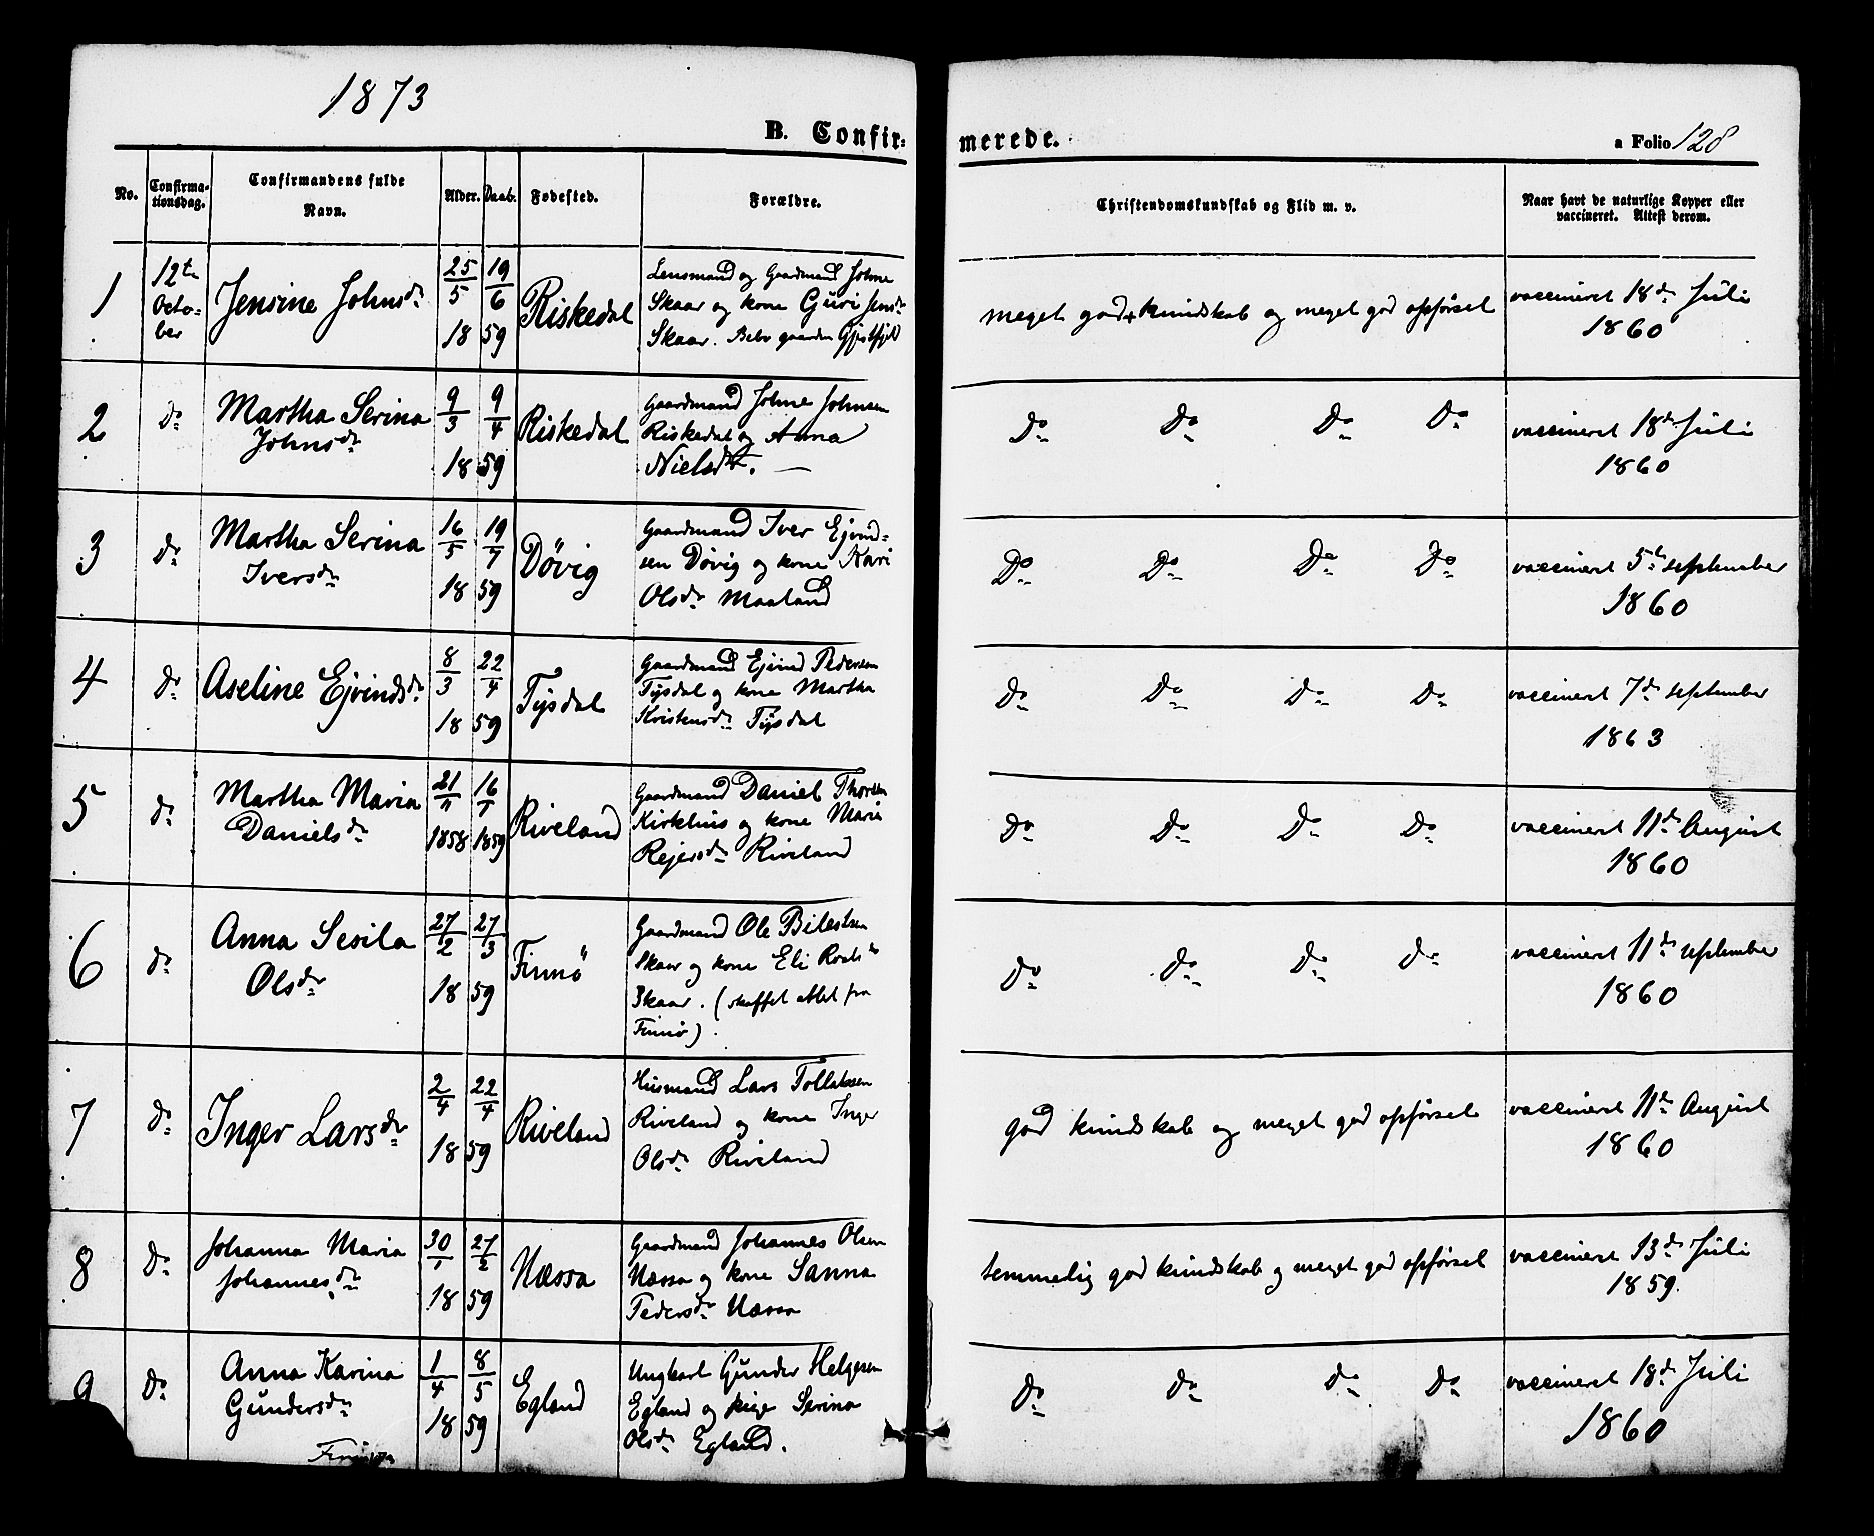 1873
B. Confir-
merede.
a Folio 128
No.
Confirma-
tionsdag.
Confirmandens fulde
Navn.
Alder.
Daab.
Fødested.
Forældre.
Christendomskundskab og Flid m. v.
Naar havt de naturlige Kopper eller
vaccineret. Attest derom.
1
12te
Octo-
ber
Jensine Johnsdr
25/5
18
19/6
59
Riskedal
Lensmand og Gaardmand Johne
Skaar og kone Guri Jensdr
Skaar. Bebo gaarden
meget god kundskab og meget god opførsel
vaccineret 18de Juli
1860
2
Do
Martha Serina
Johnsdr
9/3
18
9/4
59
Riskedal
Gaardmand Johne Johnsen
Riskedal og Anna
Nielsdtr.
Do Do Do Do
vaccineret 18de Juli
1860
3
Do
Martha Serina
Iversdr
16/5
18
19/7
59
Døvig
Gaardmand Iver Ejvind-
sen Døvig og kone Kari
Olsdr Maaland
Do Do Do Do
vaccineret 5te september
1860
4
Do
Aseline Ejvindsdr
8/3
18
22/4
59
Tysdal
Gaardmand Ejvind Pedersen
Tysdal og kone Martha
Kristensdr Tysdal
Do Do Do Do
vaccineret 7de september
1863
5
Do
Martha Maria
Danielsdr
21/11
1858
16/1
1859
Riveland
Gaardmand Daniel Thorsen
Kirkhus og kone Mari
Rejersdr Riveland
Do Do Do Do
vaccineret 11de August
1860
6
Do
Anna Sesila
Olsdr
27/2
18
27/3
59
Finnø
Gaardmand Ole
Skaar og kone Eli
Skaar. (skaffet attest fra
Finnø).
Do Do Do Do
vaccineret 11de september
1860
7
Do
Inger Larsdr
2/4
18
22/4
59
Riveland
Husmand Lars Tollaksen
Riveland og kone Inger
Olsdr Riveland
god kundskab og meget god opførsel
vaccineret 11te August
1860
8
Do
Johanna Maria
Johannesdr
30/1
18
27/2
59
Næssa
Gaardmand Johannes Olsen
Næssa og kone Sanna
Pedersdr Næssa
temmelig god kundskab og meget god opførsel
vaccineret 13de Juli
1859.
9
Do
Anna Karina
Gundersdr
1/4
18
8/5
59
Egland
Ungkarl Gunder Helgesen
Egland og pige Serina
Olsdr Egland.
Do Do Do Do
vaccineret 18de Juli
1860